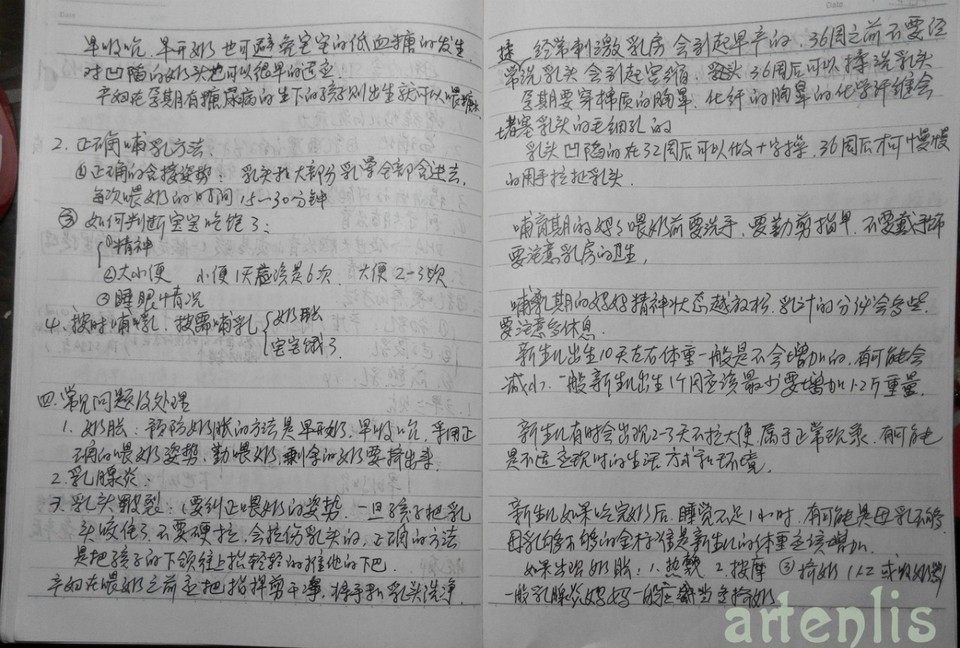 早吸吮、早开奶也可避免宝宝的低血糖的发生.
对凹陷的奶头也可以很早的适应
孕妇在孕期有糖尿病的生下的孩子则出生就可以喂糖水
2. 正确哺乳方法:
①正确的含接姿势: 乳头和大部份乳晕全部含进去,
每次喂奶的时间 15-30分钟
③ 如何判断宝宝吃饱了:
①精神
②大小便 小便1天应该是6次. 大便2-3次
③睡眠情况
4. 按时哺乳. 按需哺乳 奶胀
宝宝饿了.
四. 常见问题及处理
1. 奶胀: 预防奶胀的方法是早开奶. 早吸吮, 采用正
确的喂奶姿势, 勤喂奶, 剩余的奶要挤出来.
2. 乳腺炎:
3. 乳头皲裂: 1要纠正喂奶的姿势. 一旦孩子把乳
头咬住了不要硬拉. 会拉伤乳头的, 正确的方法
是把孩子的下颌往上 轻轻的推他的下巴.
孕妇在喂奶之前要把指甲剪干净, 将手和乳头洗净.
经常刺激乳房会引起早产的, 36周之前不要经
常洗乳头会引起宫缩, 36周后可以擦洗乳头
孕期要穿棉质的胸罩, 化纤的胸罩的化学纤维会
堵塞乳头的毛细孔的
乳头凹陷的在32周后可以做十字操, 36周后才可慢慢
的用手拉扯乳头.
哺育期的妈妈喂奶前要洗手, 要勤剪指甲. 不要戴手饰
要注意乳房的卫生,
哺乳期的妈妈精神状态越放松. 乳汁的分泌会多些.
要注意多休息.
新生儿出生10天左右体重一般是不会增加的, 有可能会
减小. 一般新生儿出生1个月应该最少要增加1.2斤重量.
新生儿有时会出现2-3天不拉大便, 属于正常现象. 有可能
是不适应现时的生活方式和环境.
新生儿如果吃完奶后, 睡觉不足1小时. 有可能是母乳不够
母乳够不够的金标准是新生儿的体重在续增加.
如果出现奶胀: 1. 热敷 2. 按摩 ③挤奶
一般乳腺炎妈妈一般
artenlis